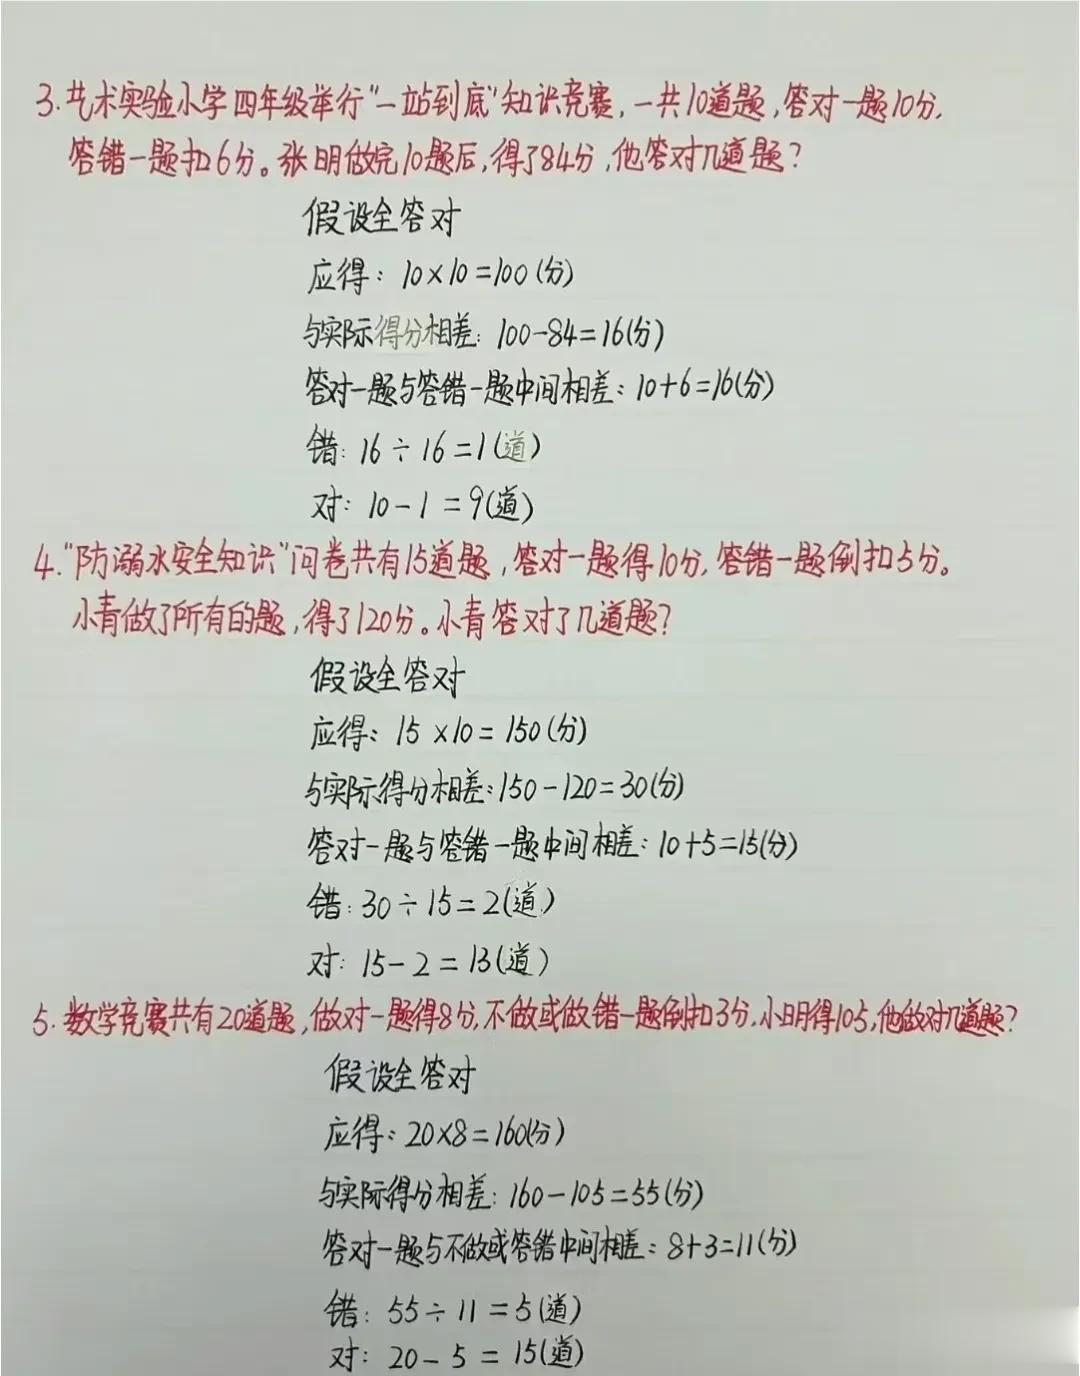 3.艺术实验小学四年级举行"一站到底"知识竞赛,一共10道题,答对一题10分,
答错一题扣6分。张明做完10题后,得了84分,他答对几道题?
假设全答对
应得:10×10=100(分)
与实际得分相差:100-84=16(分)
答对一题与答错一题中间相差:10+6=16(分)
错:16÷16=1(道)
对:10-1=9(道)
4."防溺水安全知识"问卷共有15道题,答对一题得10分,答错一题倒扣5分。
小青做了所有的题,得了120分。小青答对了几道题?
假设全答对
应得:15×10=150(分)
与实际得分相差:150-120=30(分)
答对一题与答错一题中间相差:10+5=15(分)
错:30÷15=2(道)
对:15-2=13(道)
5.数学竞赛共有20道题,做对一题得8分,不做或做错一题倒扣3分.小明得105,他做对几道题?
假设全答对
应得:20×8=160(分)
与实际得分相差:160-105=55(分)
答对一题与不做或答错中间相差:8+3=11(分)
错:55÷11=5(道)
对:20-5=15(道)